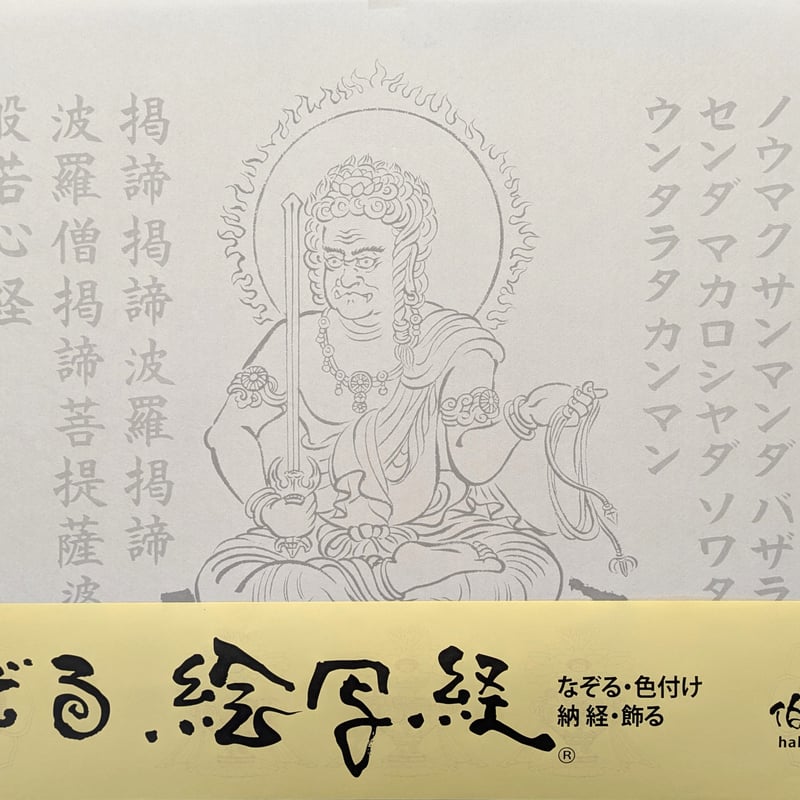 ノウマクサンマンダ バザラ
センダ マカロシヤダ ソワタ
ウンタラタ カンマン
掲諦掲諦波羅掲諦
波羅僧掲諦菩提薩波
般若心経
ぞる 絵写経
なぞる・色付け
納経・飾る
®
伯
hal